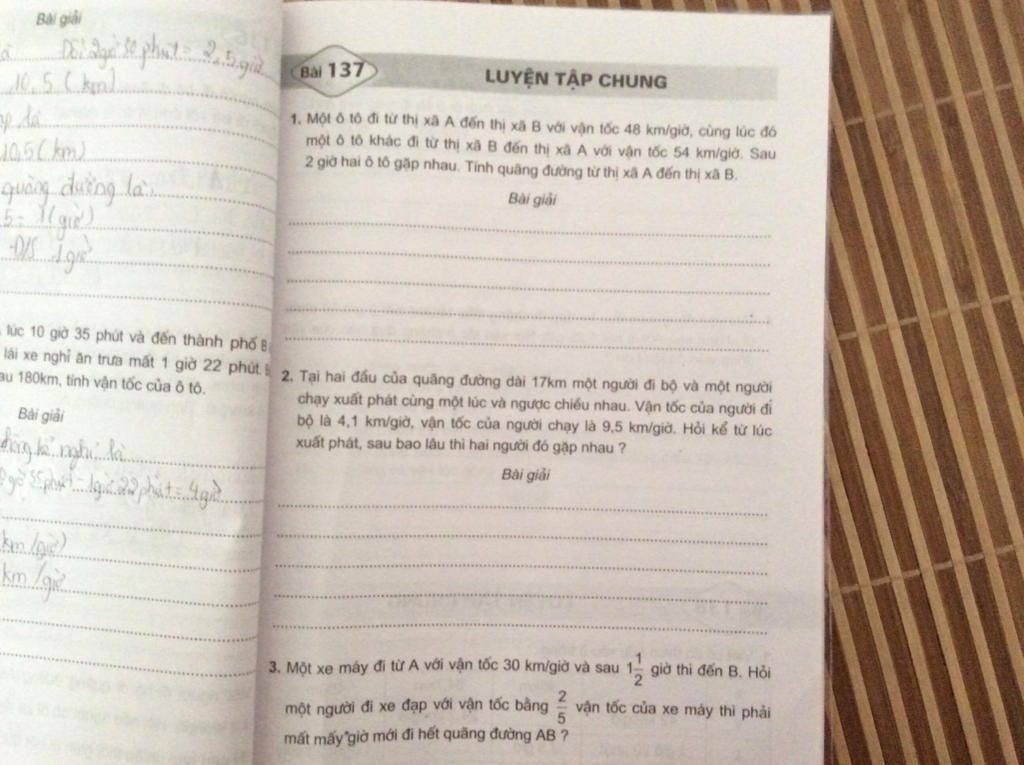 Bài giải
Đổi 2 giờ 30 phút = 2,5 giờ
10,5 (km)
là
10,5 (km)
quãng đường là:
5 = 1 (giờ)
Đ/S 1 giờ
lúc 10 giờ 35 phút và đến thành phố B
lái xe nghỉ ăn trưa mất 1 giờ 22 phút.
180km, tính vận tốc của ô tô.
Bài giải
nghỉ là
giờ 35 phút - 1 giờ 22 phút = 4 giờ
km/giờ)
km/giờ
Bài 137
LUYỆN TẬP CHUNG
1. Một ô tô đi từ thị xã A đến thị xã B với vận tốc 48 km/giờ, cùng lúc đó
một ô tô khác đi từ thị xã B đến thị xã A với vận tốc 54 km/giờ. Sau
2 giờ hai ô tô gặp nhau. Tính quãng đường từ thị xã A đến thị xã B.
Bài giải
2. Tại hai đầu của quãng đường dài 17km một người đi bộ và một người
chạy xuất phát cùng một lúc và ngược chiều nhau. Vận tốc của người đi
bộ là 4,1 km/giờ, vận tốc của người chạy là 9,5 km/giờ. Hỏi kể từ lúc
xuất phát, sau bao lâu thì hai người đó gặp nhau ?
Bài giải
3. Một xe máy đi từ A với vận tốc 30 km/giờ và sau 1 1/2 giờ thì đến B. Hỏi
một người đi xe đạp với vận tốc bằng 2/5 vận tốc của xe máy thì phải
mất mấy giờ mới đi hết quãng đường AB ?